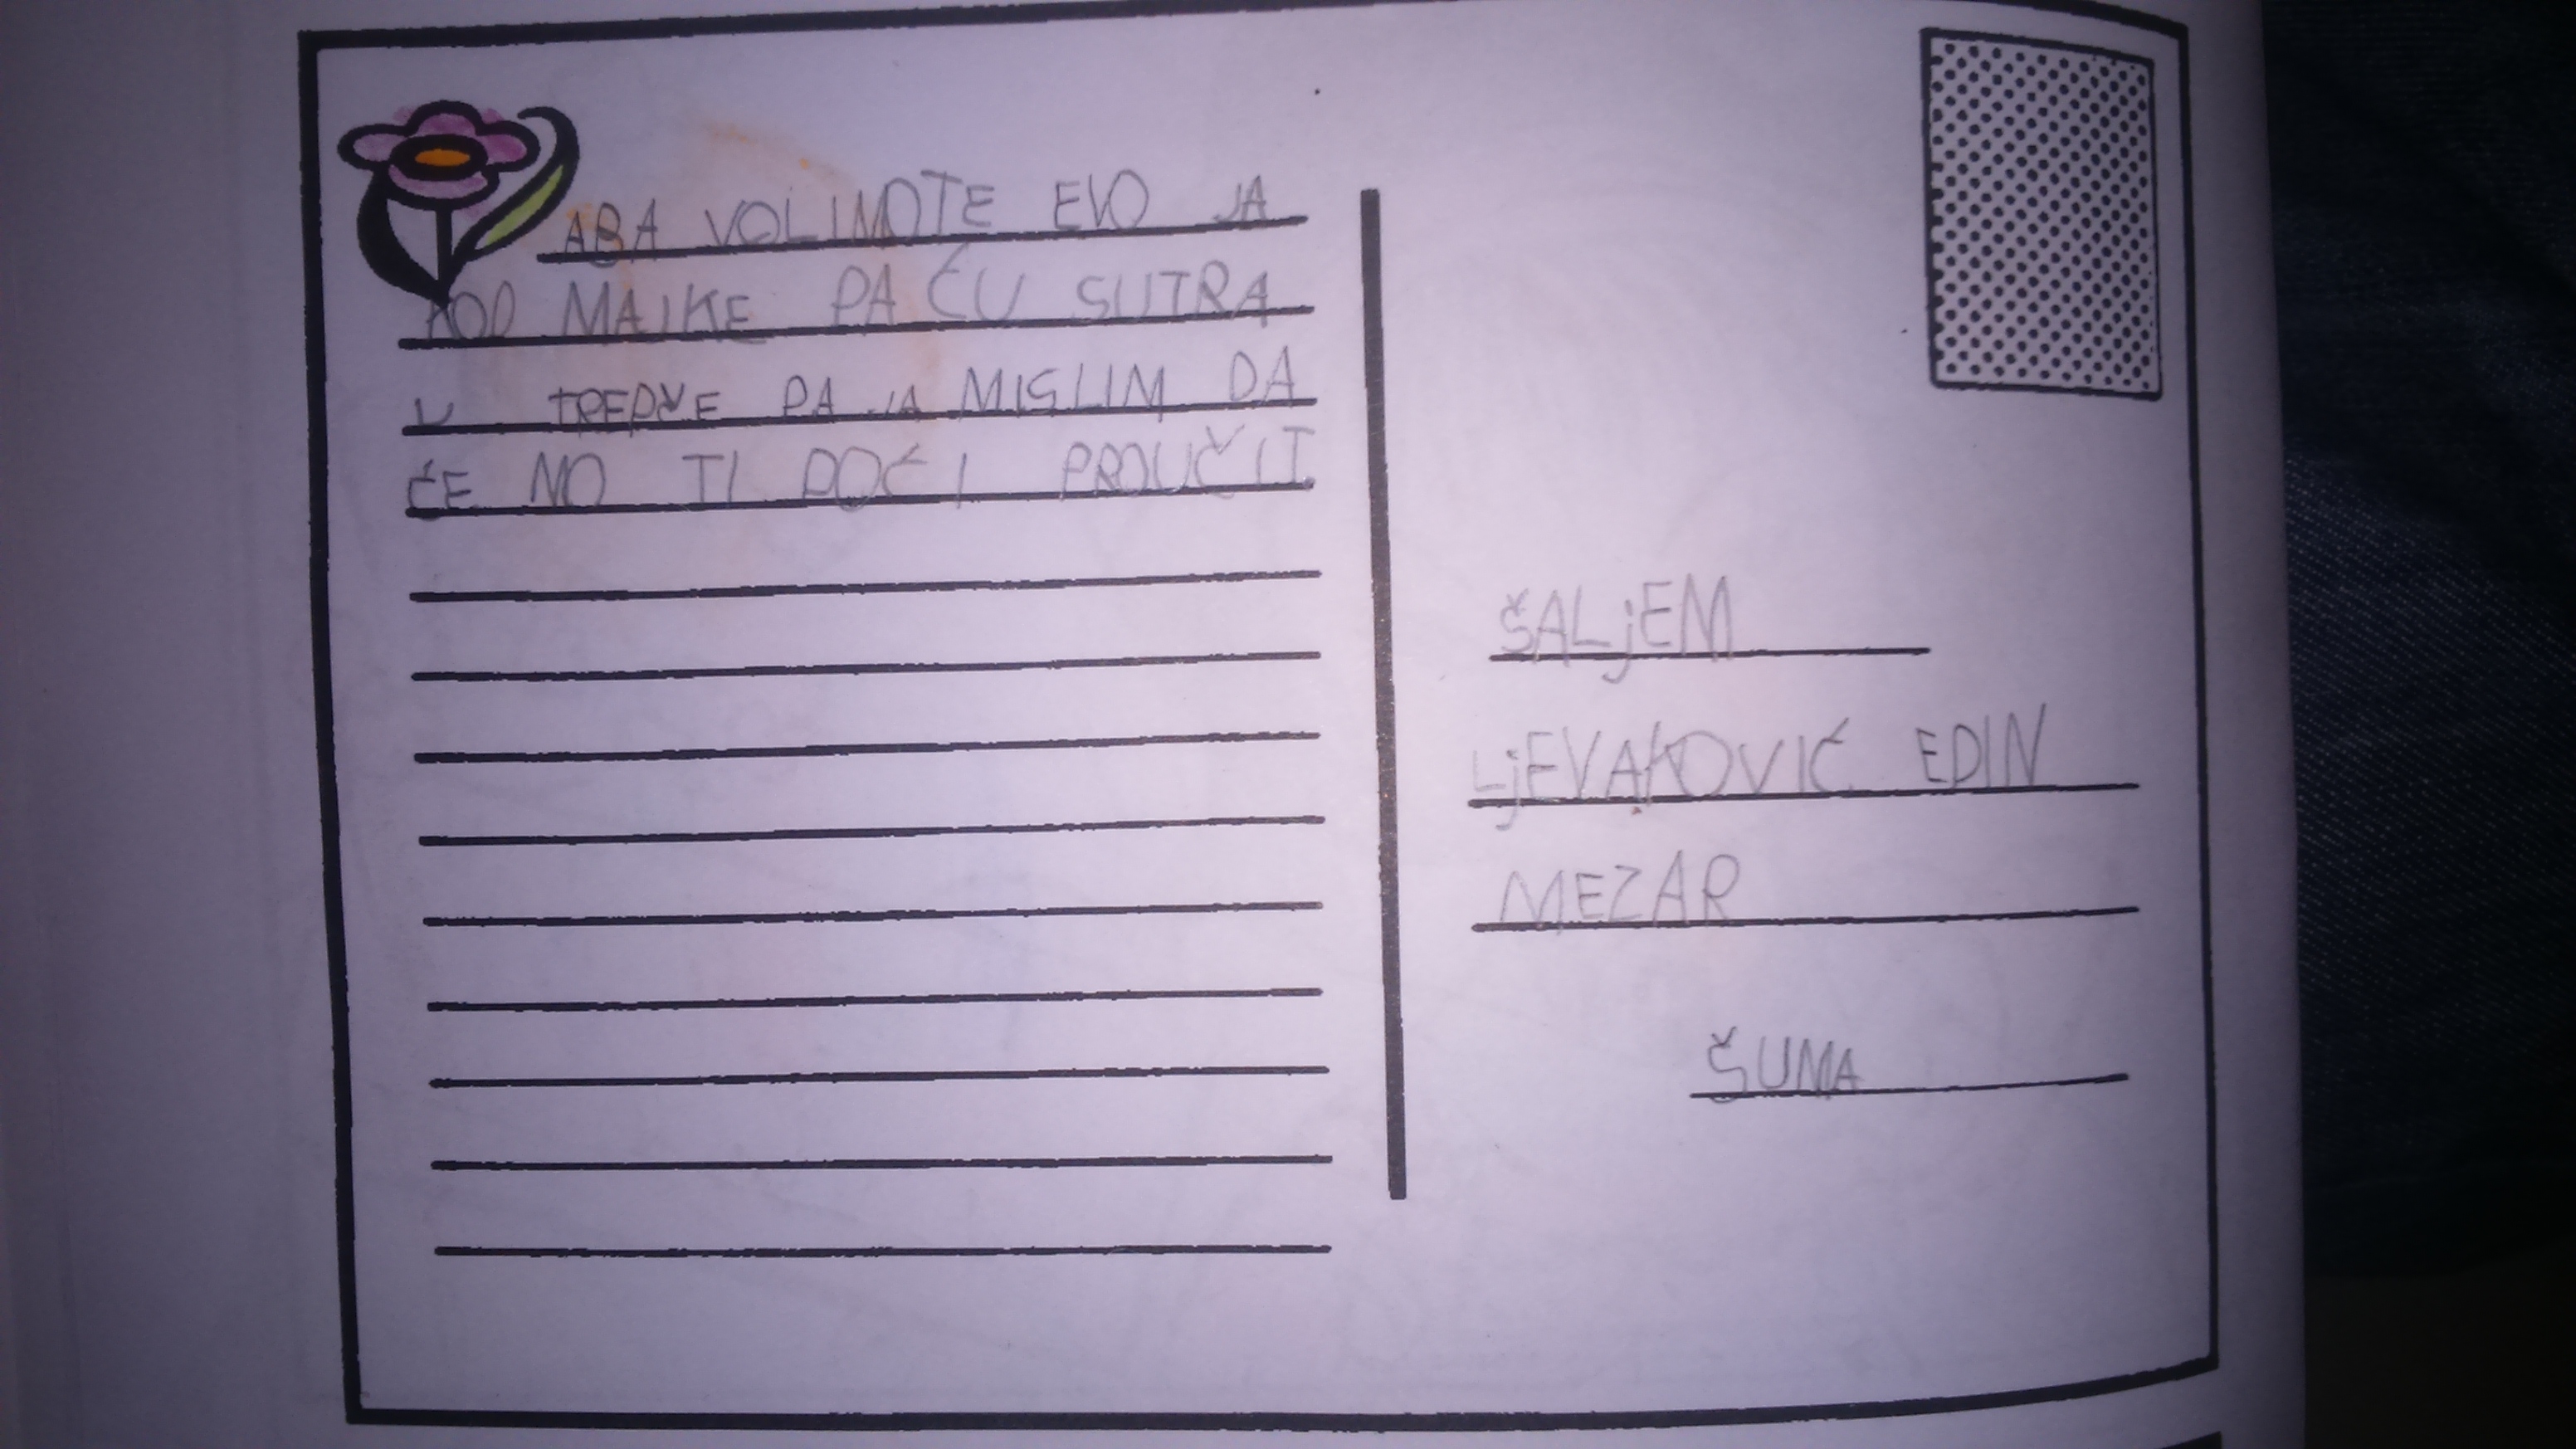 ABA VOLIMOTE EVO JA
KOD MAJKE PA ĆU SUTRA
U TREPČE PA JA MISLIM DA
ĆE NO TI DOĆI PROUČIT
ŠALjEM
LjEVAKOVIĆ EDIN
MEZAR
ŠUMA